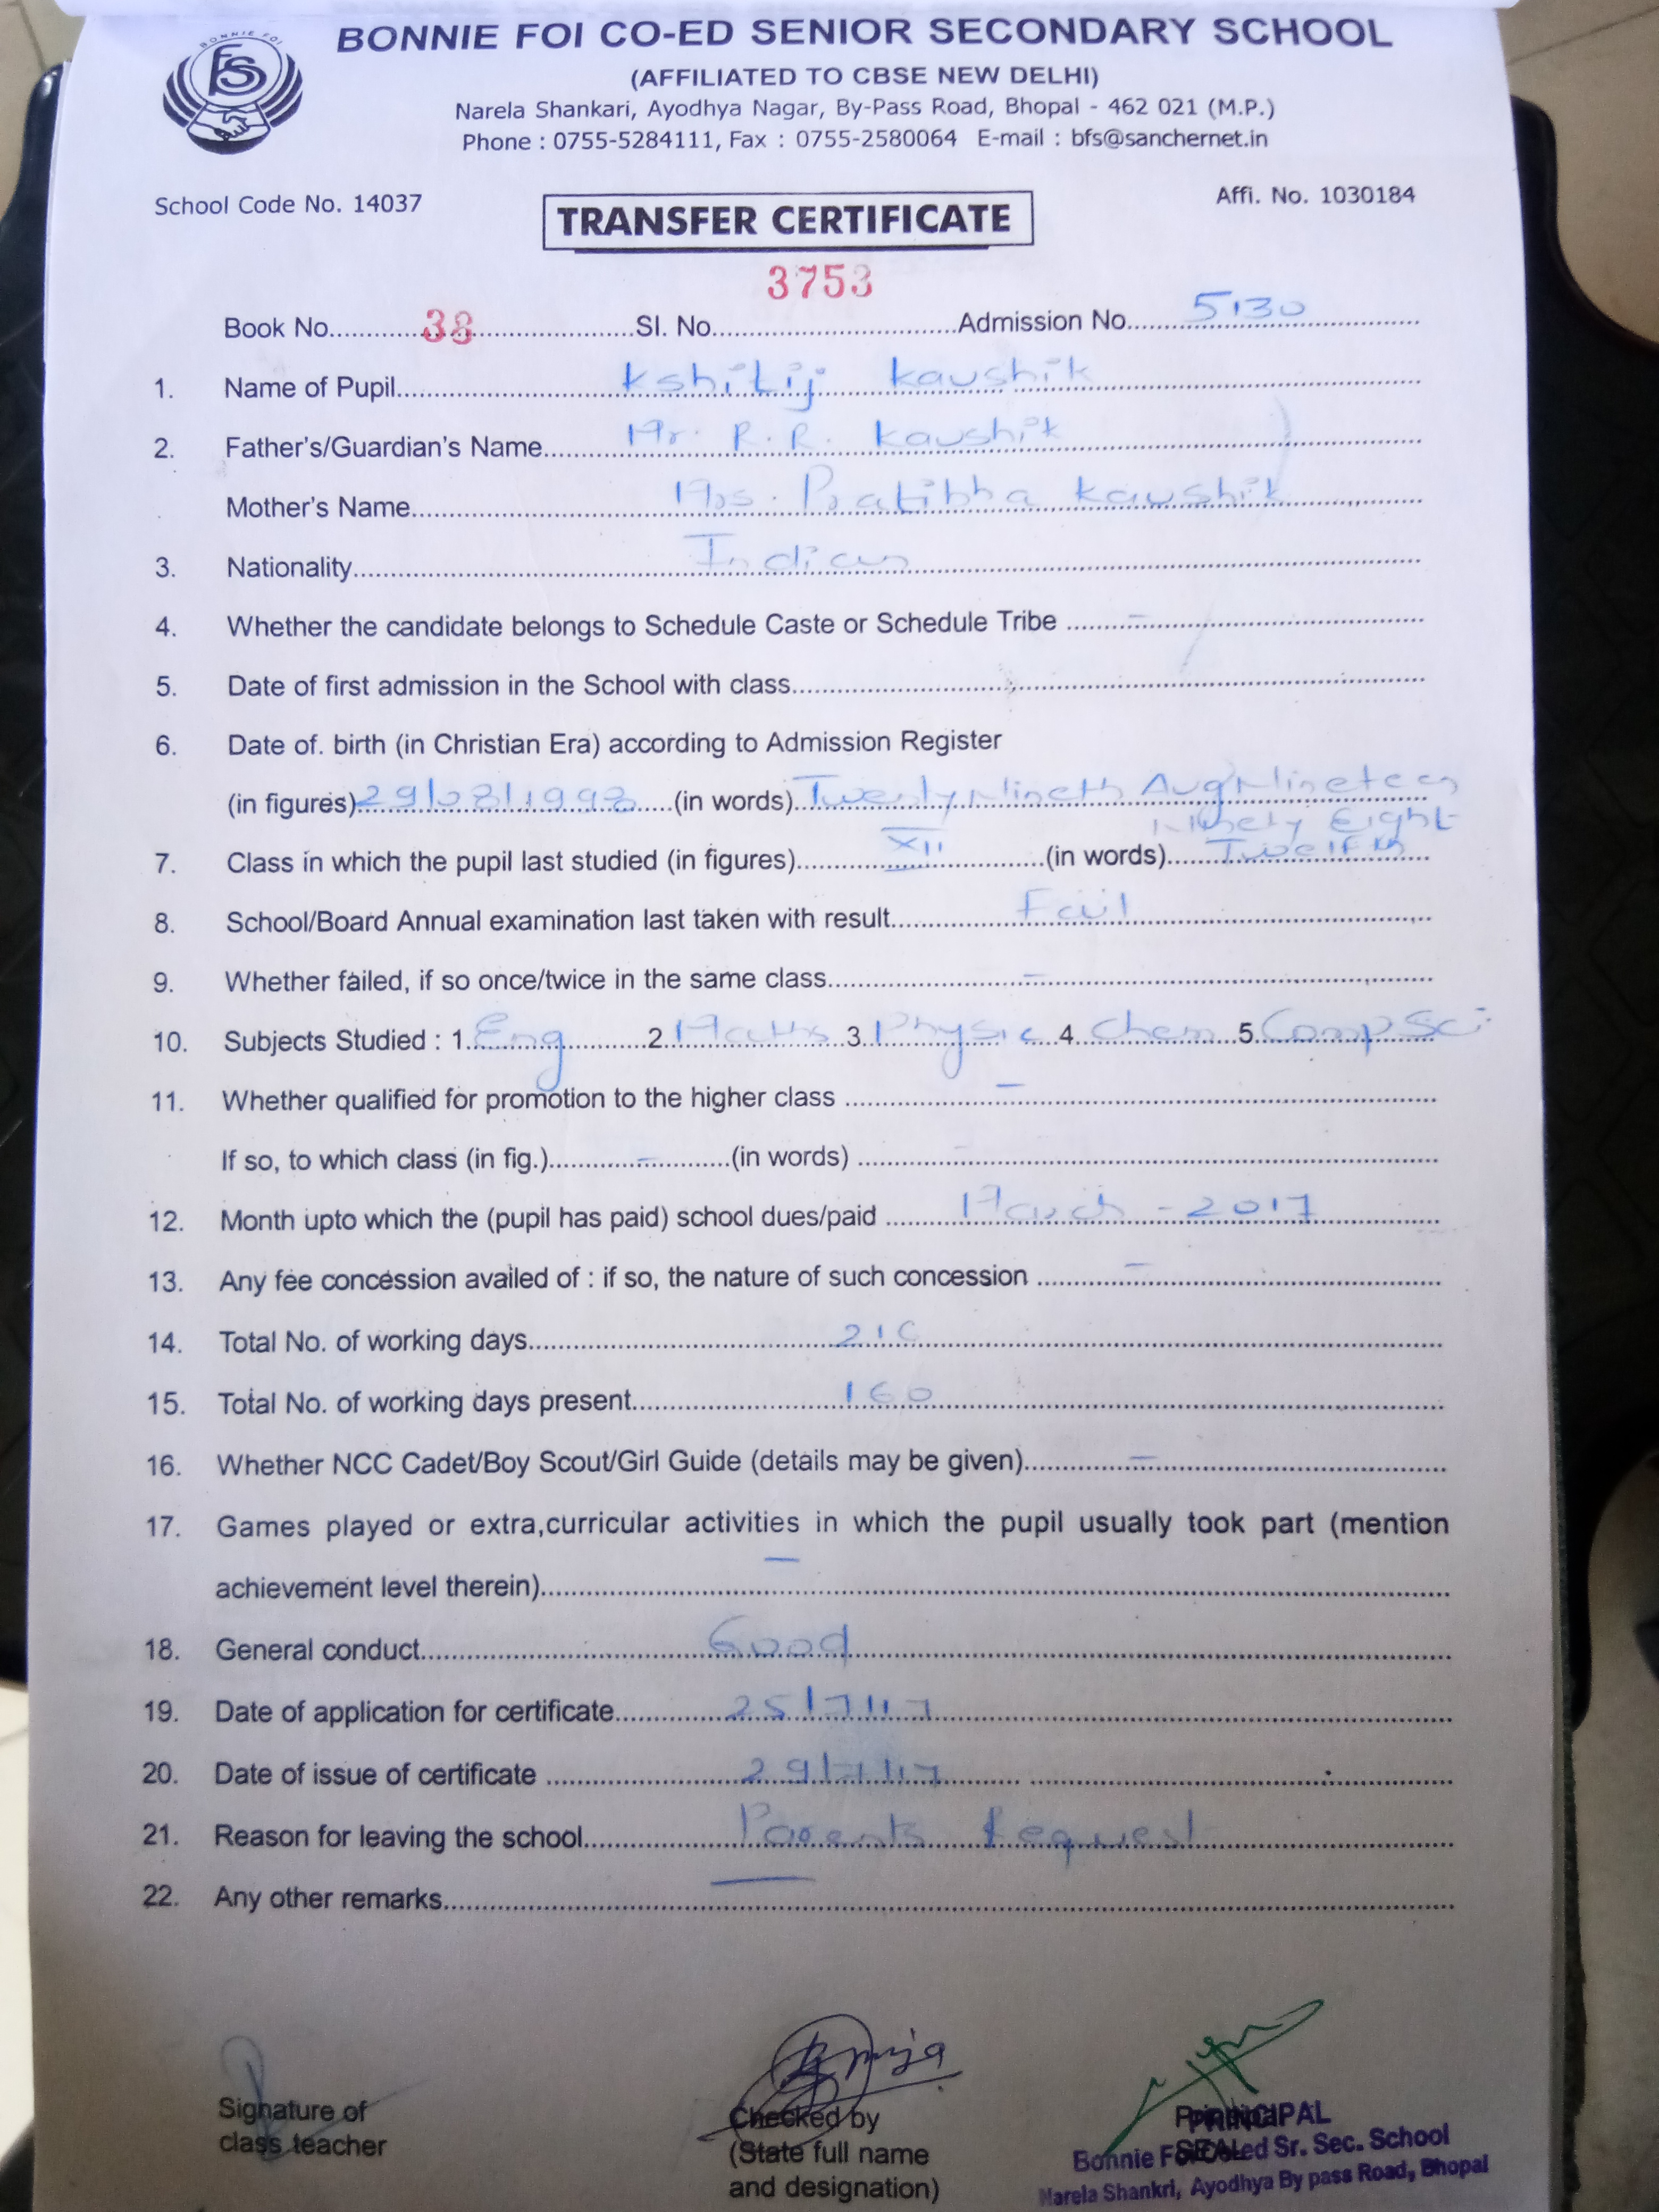 BONNIE FOI
FS
BONNIE FOI CO-ED SENIOR SECONDARY SCHOOL
(AFFILIATED TO CBSE NEW DELHI)
Narela Shankari, Ayodhya Nagar, By-Pass Road, Bhopal - 462 021 (M.P.)
Phone : 0755-5284111, Fax : 0755-2580064 E-mail : bfs@sanchernet.in
School Code No. 14037
Affi. No. 1030184
TRANSFER CERTIFICATE
3753
Book No. 38 Sl. No. Admission No. 5130
1. Name of Pupil Kshitij Kaushik
2. Father's/Guardian's Name Mr. R.R. Kaushik
Mother's Name Mrs. Pratibha Kaushik
3. Nationality Indian
4. Whether the candidate belongs to Schedule Caste or Schedule Tribe -
5. Date of first admission in the School with class
6. Date of. birth (in Christian Era) according to Admission Register
(in figures) 29/08/1998 (in words) Twenty Nineth Aug Nineteen
Ninety Eight
7. Class in which the pupil last studied (in figures) XII (in words) Twelfth
8. School/Board Annual examination last taken with result Fail
9. Whether failed, if so once/twice in the same class =
10. Subjects Studied : 1. Eng 2. Maths 3. Physic 4. Chem 5. Comp Sci
11. Whether qualified for promotion to the higher class -
If so, to which class (in fig.) - (in words) -
12. Month upto which the (pupil has paid) school dues/paid March - 2017
13. Any fee concession availed of : if so, the nature of such concession -
14. Total No. of working days 210
15. Total No. of working days present 160
16. Whether NCC Cadet/Boy Scout/Girl Guide (details may be given) -
17. Games played or extra,curricular activities in which the pupil usually took part (mention
achievement level therein) -
18. General conduct Good
19. Date of application for certificate 25/7/17
20. Date of issue of certificate 29/7/17
21. Reason for leaving the school Parents Request
22. Any other remarks -
Signature of
class teacher
Checked by
(State full name
and designation)
Principal
SEAL
PRINCIPAL
Bonnie Foi Co-ed Sr. Sec. School
Narela Shankri, Ayodhya By pass Road, Bhopal